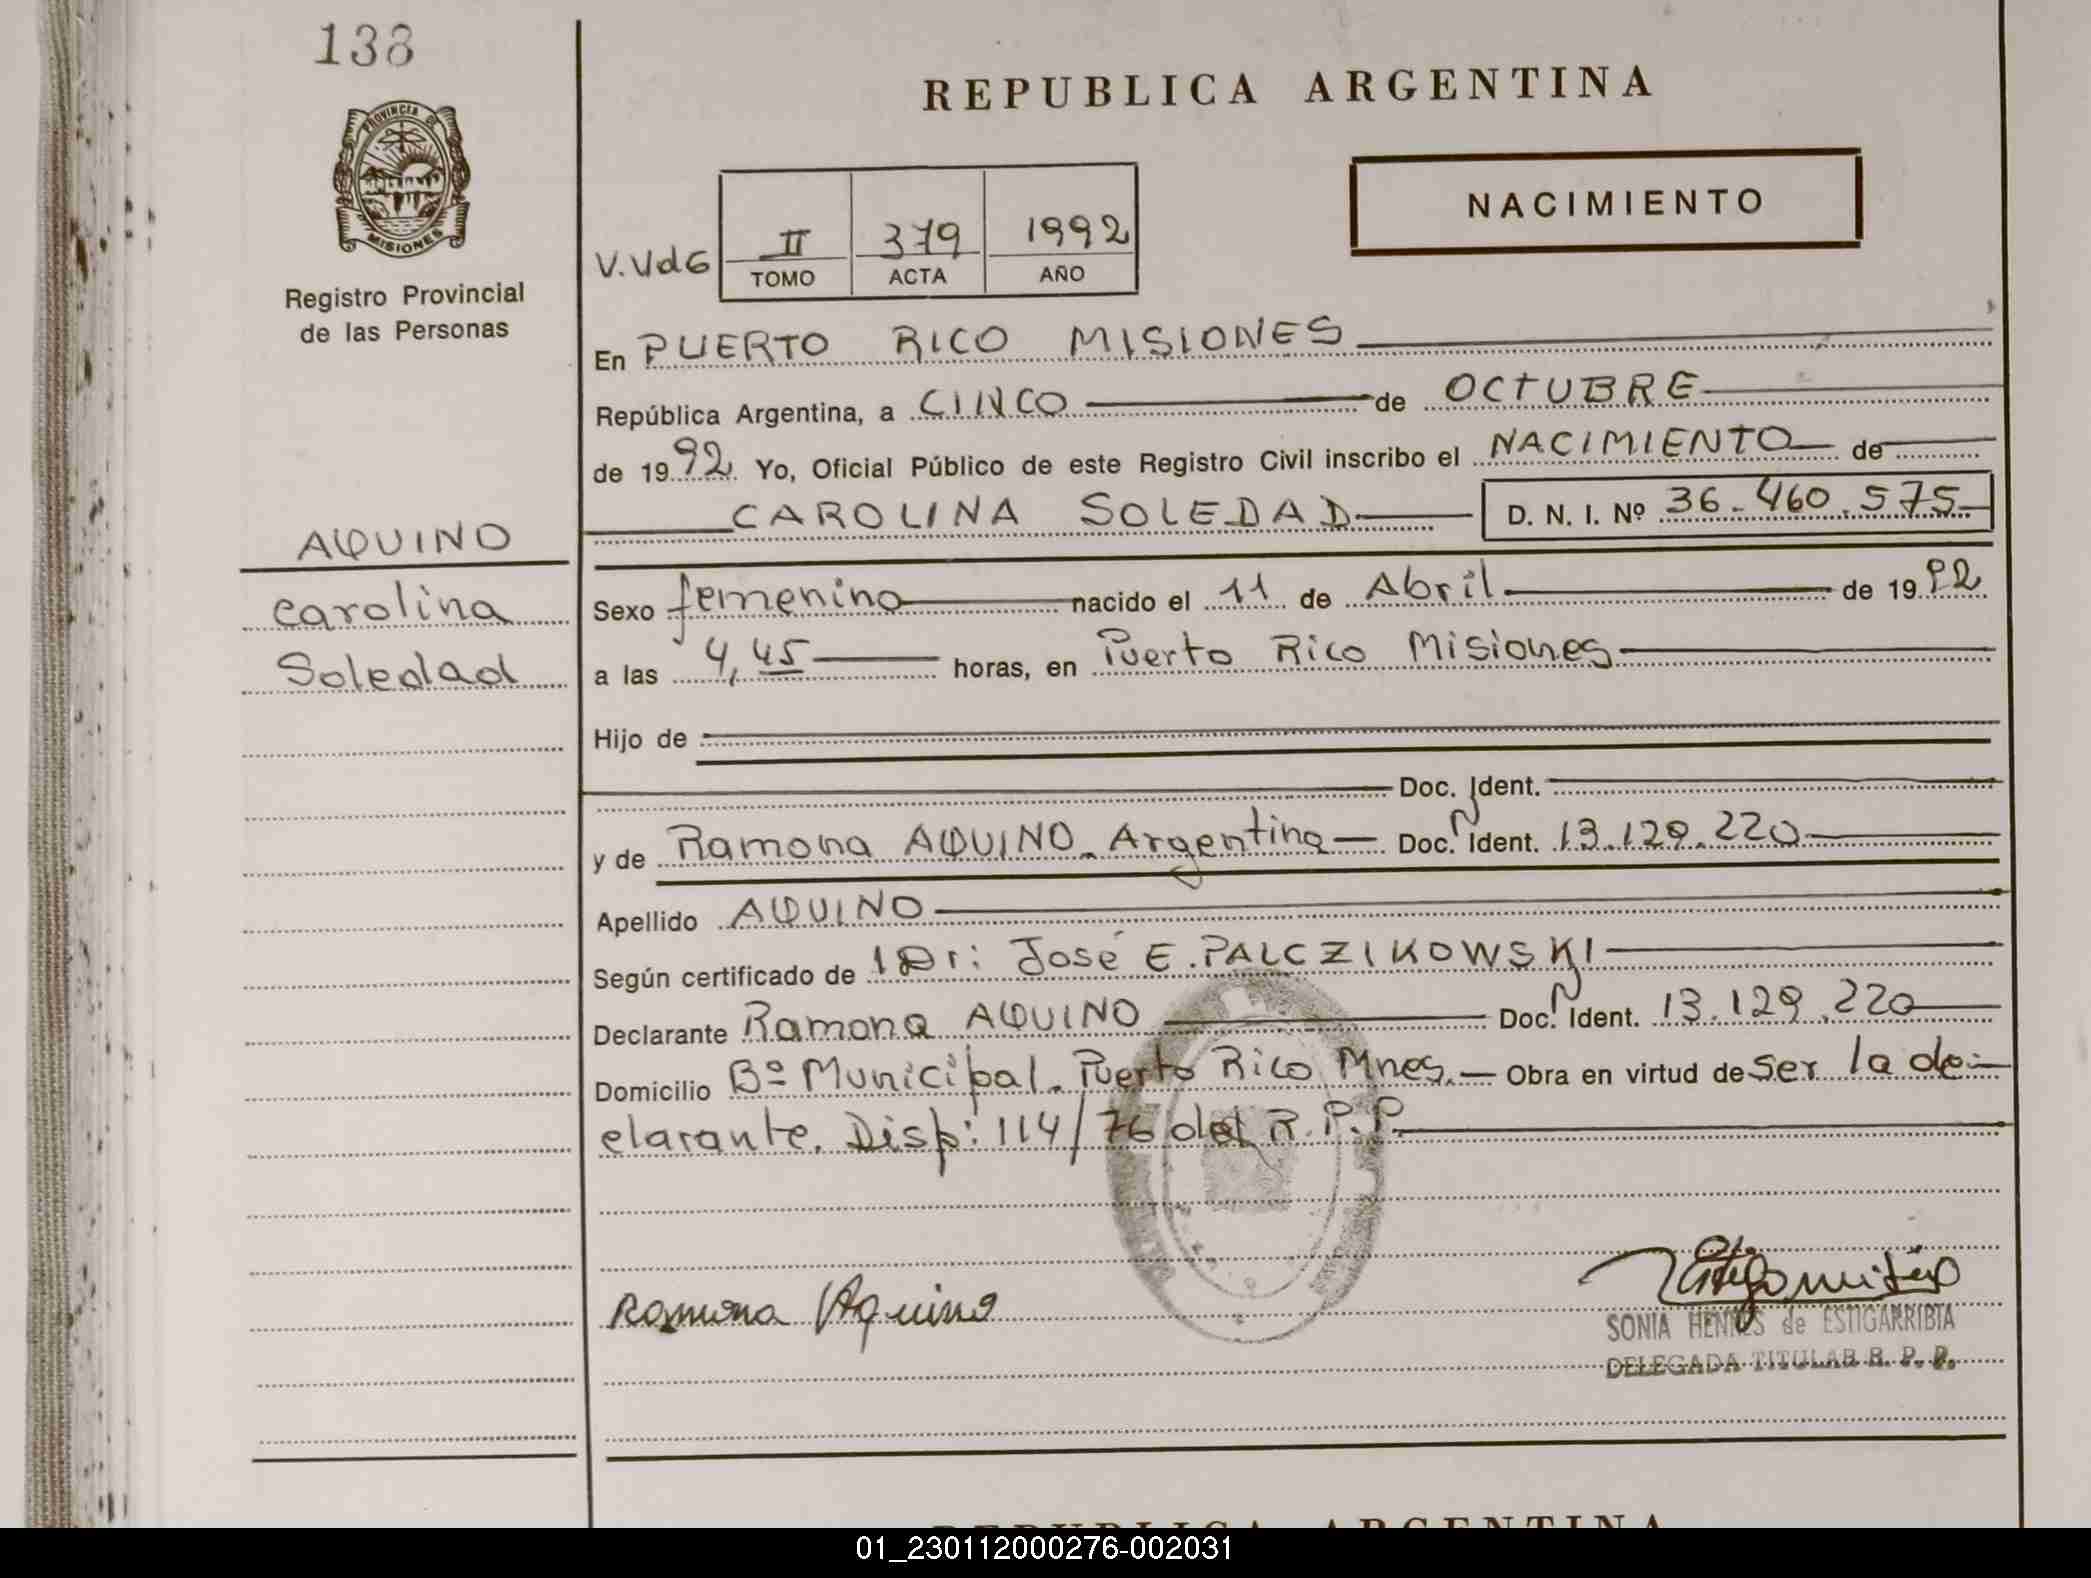 138
REPUBLICA ARGENTINA
PROVINCIA DE
MISIONES
Registro Provincial
de las Personas
NACIMIENTO
V.VdG
II 379 1992
TOMO ACTA AÑO
En PUERTO RICO MISIONES
República Argentina, a CINCO de OCTUBRE
de 1992. Yo, Oficial Público de este Registro Civil inscribo el NACIMIENTO de
CAROLINA SOLEDAD D. N. I. Nº 36.460.575
AQUINO
Carolina
Soledad
Sexo femenino nacido el 11 de Abril de 1992
a las 4,45 horas, en Puerto Rico Misiones
Hijo de
Doc. Ident.
y de Ramona AQUINO. Argentina Doc. Ident. 13.129.220
Apellido AQUINO
Según certificado de Dr: José E. PALCZIKOWSKI
Declarante Ramona AQUINO Doc. Ident. 13.129.220
Domicilio Bº Municipal. Puerto Rico Mnes. Obra en virtud de ser la de-
clarante. Disp: 114/76 del R.P.P.
Ramona Aquino
SONIA HENNES de ESTIGARRIBIA
DELEGADA TITULAR R. P. P.
REPUBLICA ARGENTINA
01_230112000276-002031